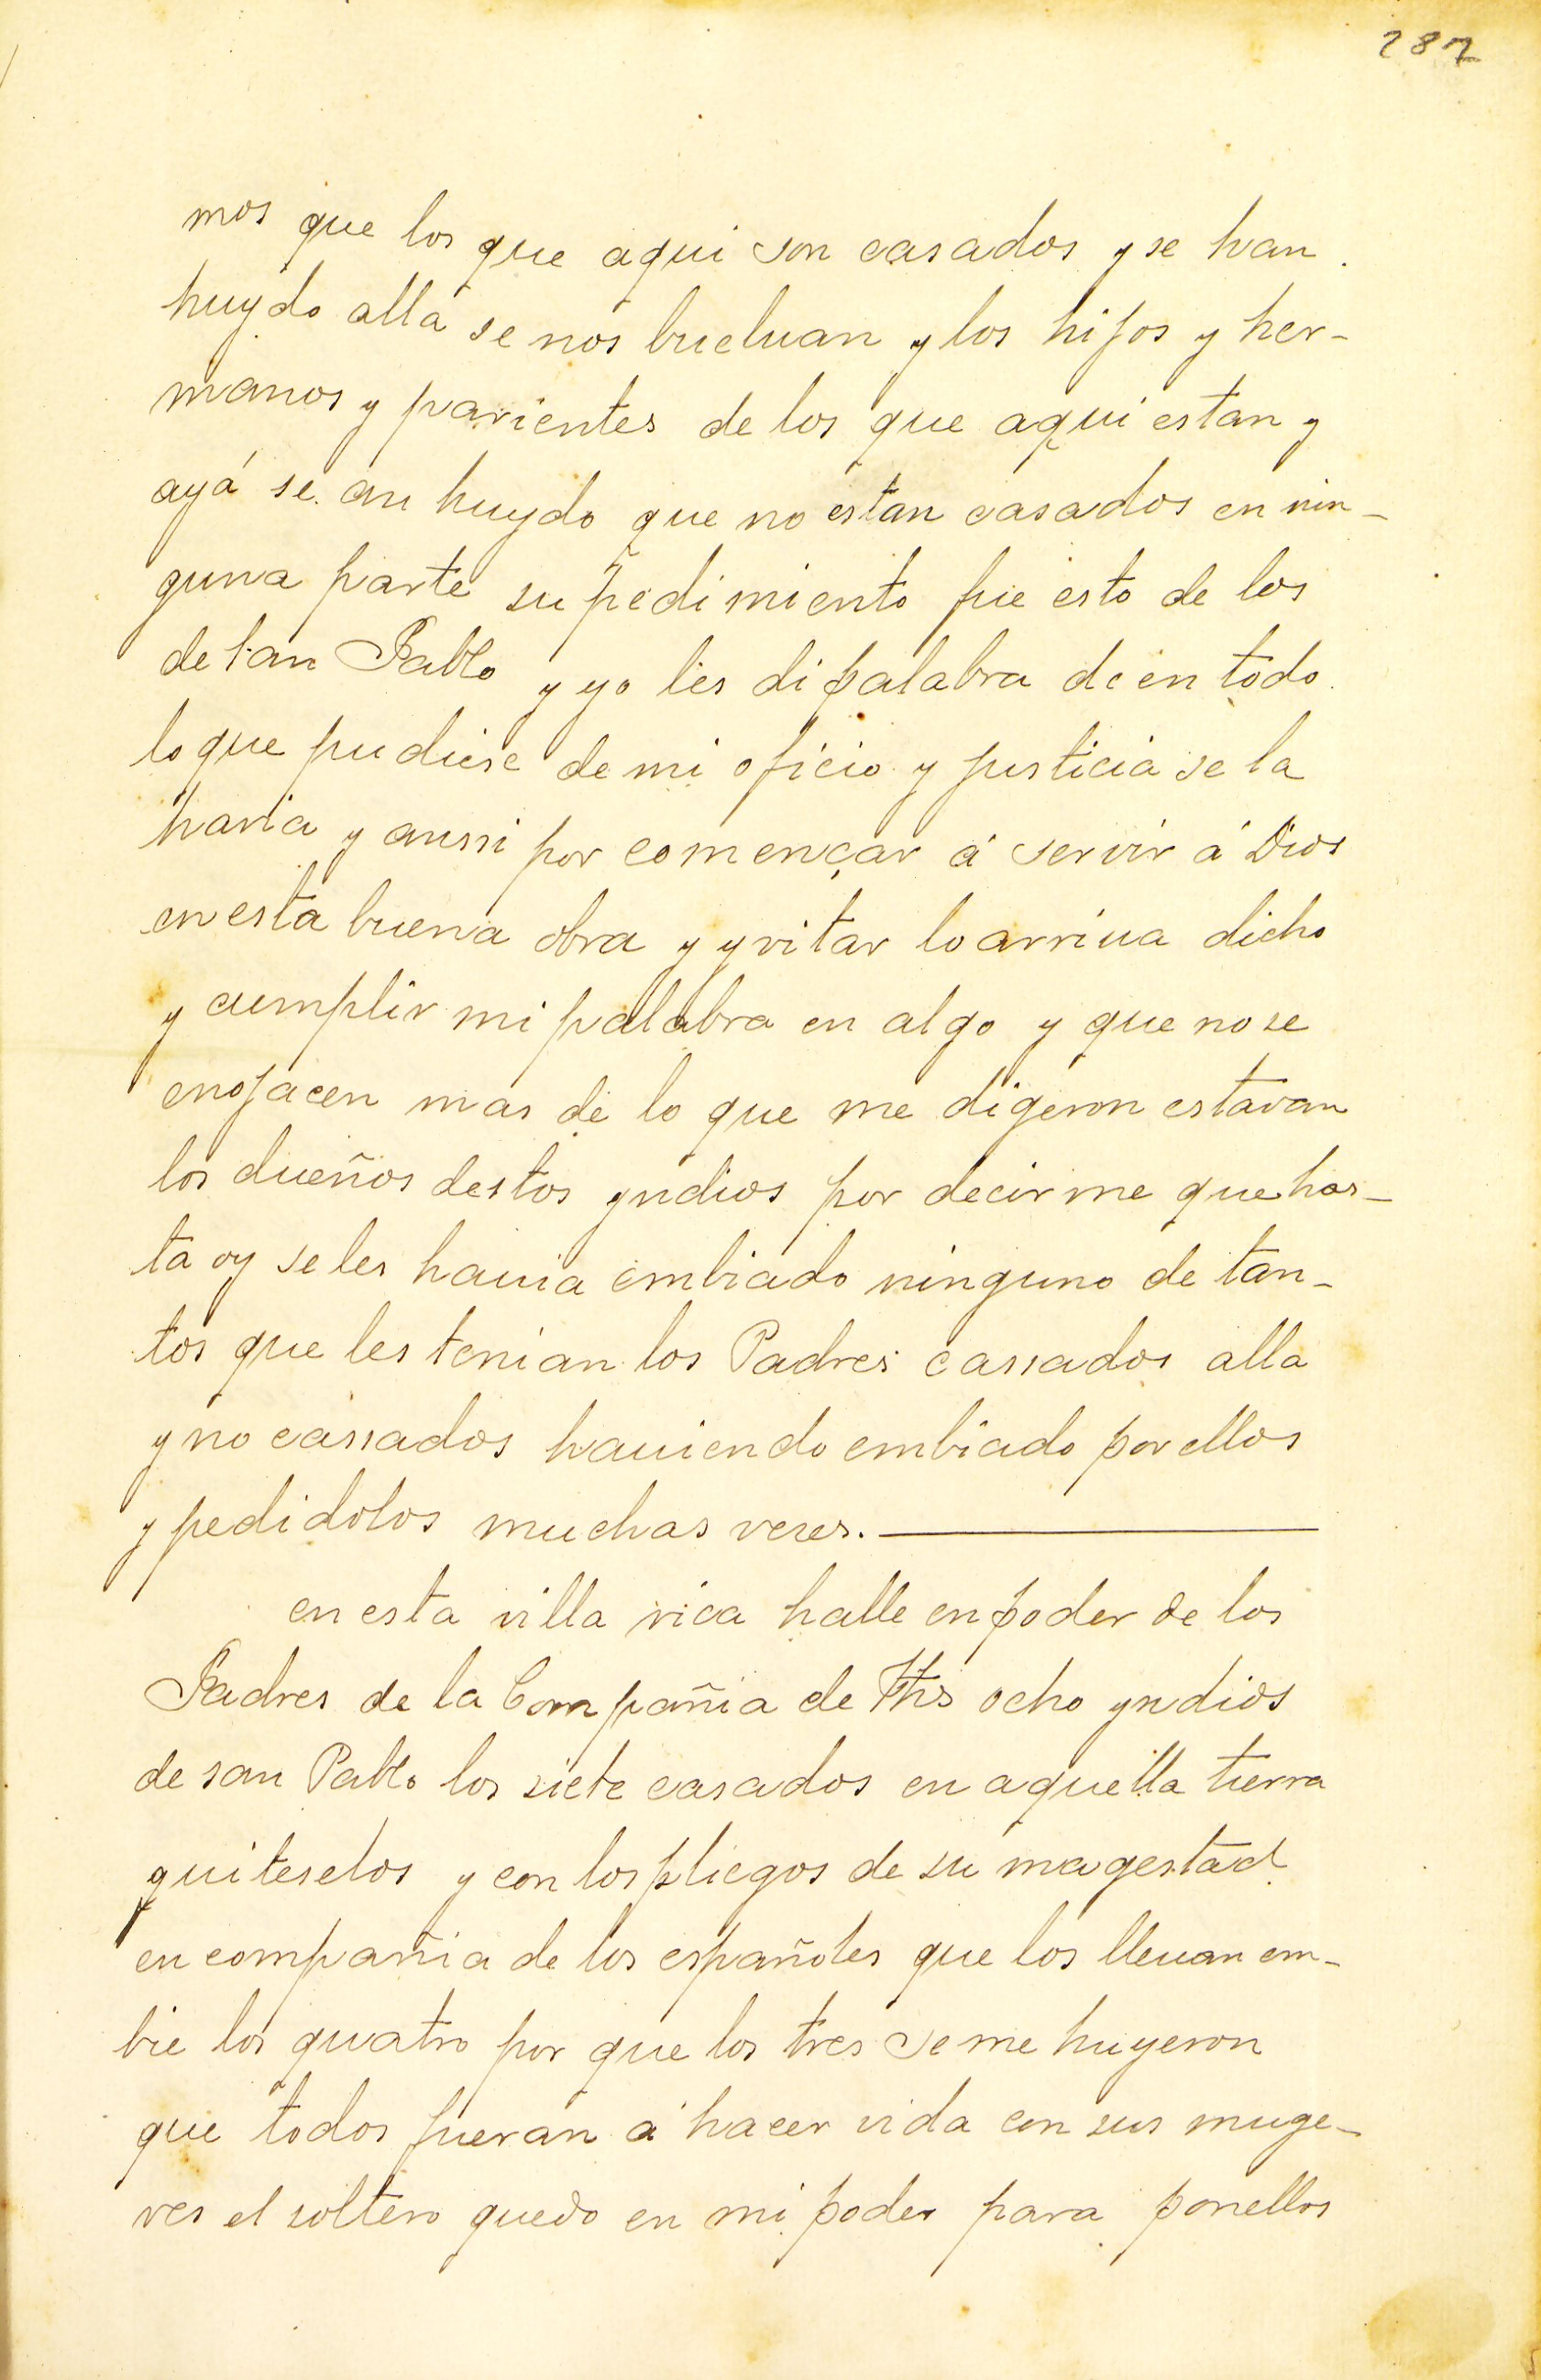 287
mos que los que aqui son casados y se han
huydo allá se nos bueluan y los hijos y her-
manos y parientes de los que aqui estan y
ayá se an huydo que no estan casados en nin-
guna parte su pedimiento fue esto de los
de San Pablo y yo les di palabra de en todo
lo que pudiese de mi oficio y justicia se la
haria y anssi por començar á servir á Dios
en esta buena obra y yvitar lo arriua dicho
y cumplir mi palabra en algo y que no se
enojacen mas de lo que me digeron estavan
los dueños destos yndios por decirme que has-
ta oy se les hauia embiado ninguno de tan-
tos que les tenian los Padres cassados alla
y no cassados hauiendo embiado por ellos
y pedidolos muchas veces.
en esta villa rica halle en poder de los
Padres de la Compañia de Jhs ocho yndios
de san Pablo los siete casados en aquella tierra
quiteselos y con los pliegos de su magestad
en compañia de los españoles que los lleuan em-
bie los quatro por que los tres se me huyeron
que todos fueran á hacer vida con sus muge-
res el soltero quedo en mi poder para ponellos